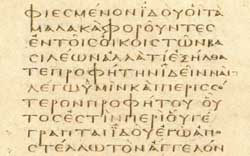 ΦΙΕCΜΕΝΟΝΙΔΟΥΟΙΤΑ
ΜΑΛΑΚΑΦΟΡΟΥΝΤΕC
ΕΝΤΟΙCΟΙΚΟΙCΤΩΝΒΑ
CΙΛΕΩΝΑΛΛΑΤΙΕΞΗΛΘΑ
ΤΕΠΡΟΦΗΤΗΝΙΔΕΙΝΝΑΙ
ΛΕΓΩΥΜΙΝΚΑΙΠΕΡΙCCΟ
ΤΕΡΟΝΠΡΟΦΗΤΟΥΟΥ
ΤΟCΕCΤΙΝΠΕΡΙΟΥΓΕ
ΓΡΑΠΤΑΙΙΔΟΥΕΓΩΑΠΟ
CΤΕΛΛΩΤΟΝΑΓΓΕΛΟΝ